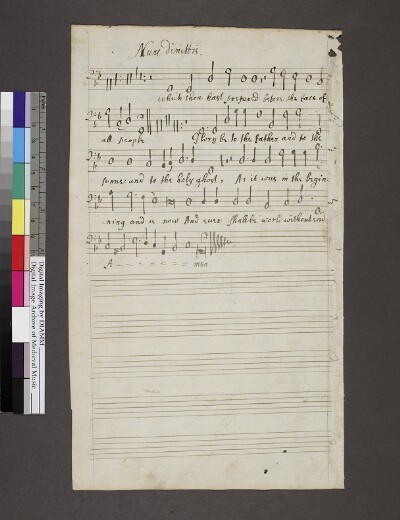 Nunc dimittis.
which thou hast prepared before the face of
all people Glory be to the father and to the
sonne and to the holy ghost, As it was in the begin-
ning and is now And ever shalbe world without end
A - - - - - - - - men
Digital Imaging by DIAMM
Digital Image Archive of Medieval Music